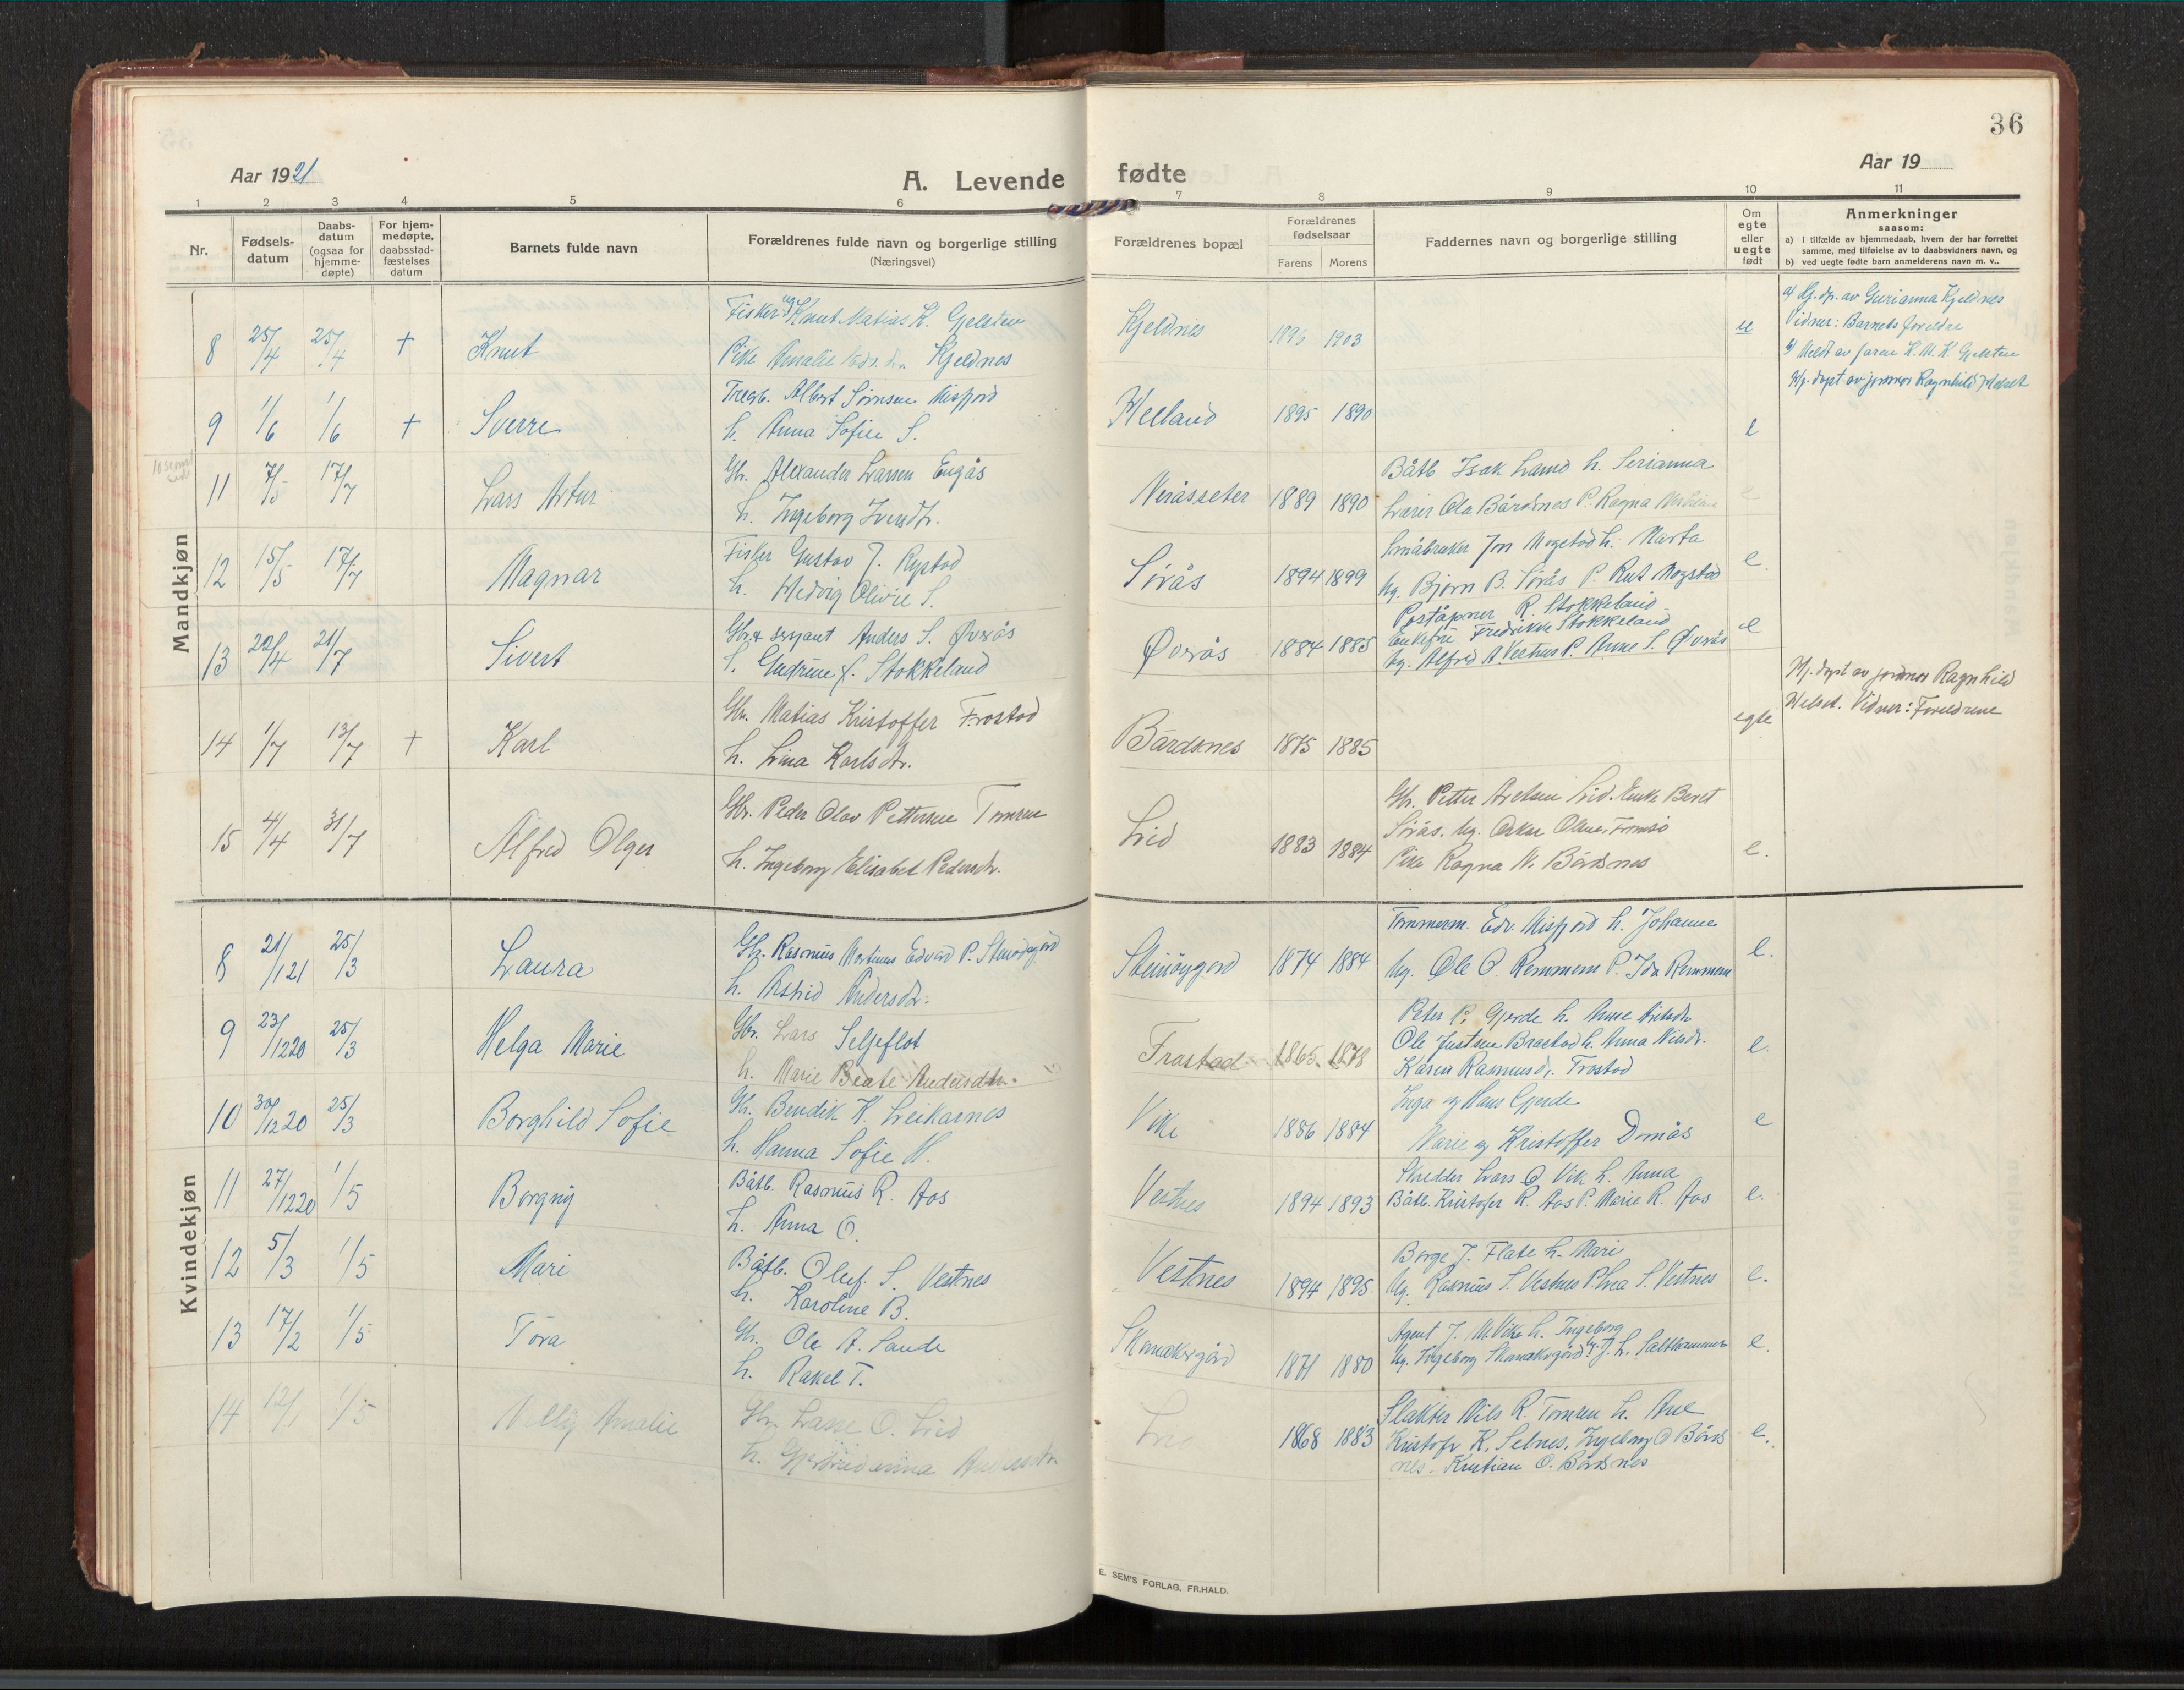 36
Aar 1921
A. Levende fødte
Aar 19
1 2 3 4 5 6 7 8 9 10 11
Nr.
Fødsels-
datum
Daabs-
datum
(ogsaa for
hjemme-
døpte)
For hjem-
medøpte,
daabsstad-
fæstelses
datum
Barnets fulde navn
Forældrenes fulde navn og borgerlige stilling
(Næringsvei)
Forældrenes bopæl
Forældrenes
fødselsaar
Farens Morens
Faddernes navn og borgerlige stilling
Om
egte
eller
uegte
født
Anmerkninger
saasom:
a) i tilfælde av hjemmedaab, hvem der har forrettet
samme, med tilføielse av to daabsvidners navn, og
b) ved uegte fødte barn anmelderens navn m. v..
Mandkjøn
8 25/4 25/4 + Knut
Fisker ug Knut Matias K. Gjelsten
Pike Amalie Kjeldnes
Kjeldnes 1896 1903 u
a) Hj. dp. av Gurianna Kjeldnes
Vidner: Barnets foreldre
b) Meldt av faren K. M. K. Gjelsten
9 1/6 1/6 + Sverre
Albert Sörnsen Misfjord
h. Anna Sofie S.
Helland 1895 1890 e
Hj. døpt av jormor Ragnhild Helset
11 7/5 17/7 Lars Artur
Gbr. Alexander Larsen Engås
h. Ingeborg Iversdtr.
Neråsseter 1889 1890
Båtb Isak Lamo h. Serianna
Lærer Ola Bårdsnes P. Ragna
e
12 15/5 17/7 Magnar
Fisker Gustav J. Rypdal
h. Hedvig Olivie S.
Sørås 1894 1899
Småbruker Jon Mogstad h. Marta
Ug. Bjørn B. Sørås P. Rut Mogstad
e.
13 22/4 21/7 Sivert
Gbr. & serjant Anders S. Øvrås
h. Gudrine J. Stokkeland
Øvrås 1884 1885
Poståpner R. Stokkeland
Enkefru Fredrikke Stokkeland
Ug. Alfred A. Vestnes P. Anne S. Øvrås
e
14 1/7 13/7 + Karl
Gbr. Matias Kristoffer Frostad
h. Lina Karlsdtr.
Bårdsnes 1875 1885 egte
Hj. døpt av jormor Ragnhild
Helset. Vidner: Foreldrene
15 4/4 31/7 Alfred Olger
Gbr. Peder Olav Pettersen Tomren
h. Ingeborg Elisabet Pedersdtr.
Lid 1883 1884
Gbr. Petter Lid. Enke Beret
Sørås. Ug. Oskar
Pike Ragna N. Bårdsnes
e.
Kvindekjøn
8 21/1 21 25/3 Laura
Gbr. Rasmus Martinus Edvard P.
h. Astrid Andersdtr.
1874 1884
Tømmerm. Edv. Misfjord h. Johanne
Ug. Ole O. Remmem P. Ida Remmem
e.
9 23/12 20 25/3 Helga Marie
Gbr. Lars Seljeflot
h. Marie Beate Andersdtr.
Frostad 1865 1878
Peter P. Gjerde h. Anne
Ole Justsen Brastad h. Anna Nilsdr.
Karen Rasmusdr. Frostad
e.
10 30/12 20 25/3 Borghild Sofie
Gbr. Bendik K. Leikarnes
h. Hanna Sofie N.
Vike 1886 1884
Inga og Hans Gjerde
Marie og Kristoffer Domås
e
11 27/12 20 1/5 Borgny
Båtb. Rasmus R. Aas
h. Anna O.
Vestnes 1894 1893
Skredder Lars O. Vik h. Anna
Båtb. Kristofer R. Aas P. Marie R. Aas
e.
12 5/3 1/5 Mari
Båtb. Oluf S. Vestnes
h. Karoline B.
Vestnes 1894 1895
Børge J. Flate h. Mari
Ug. Rasmus S. Vestnes P. Lea S. Vestnes
e.
13 17/2 1/5 Tora
Gbr. Ole A. Sande
h. Rakel T.
Skomakergård 1871 1880
Agent J. M. Vike h. Ingeborg
Ug. Ingeborg Skomakergård Ug. J. L. Saltkammer
e.
14 12/1 1/5 Nelly Amalie
Gbr. Lasse O. Lid
h.
Lid 1868 1883
Slakter Nils R. Tomren h. Ane
Kristofr K. Selnes, Ingeborg O Bårds
nes. Kristian O. Bårdsnes
e.
E. SEM'S FORLAG, FR.HALD.